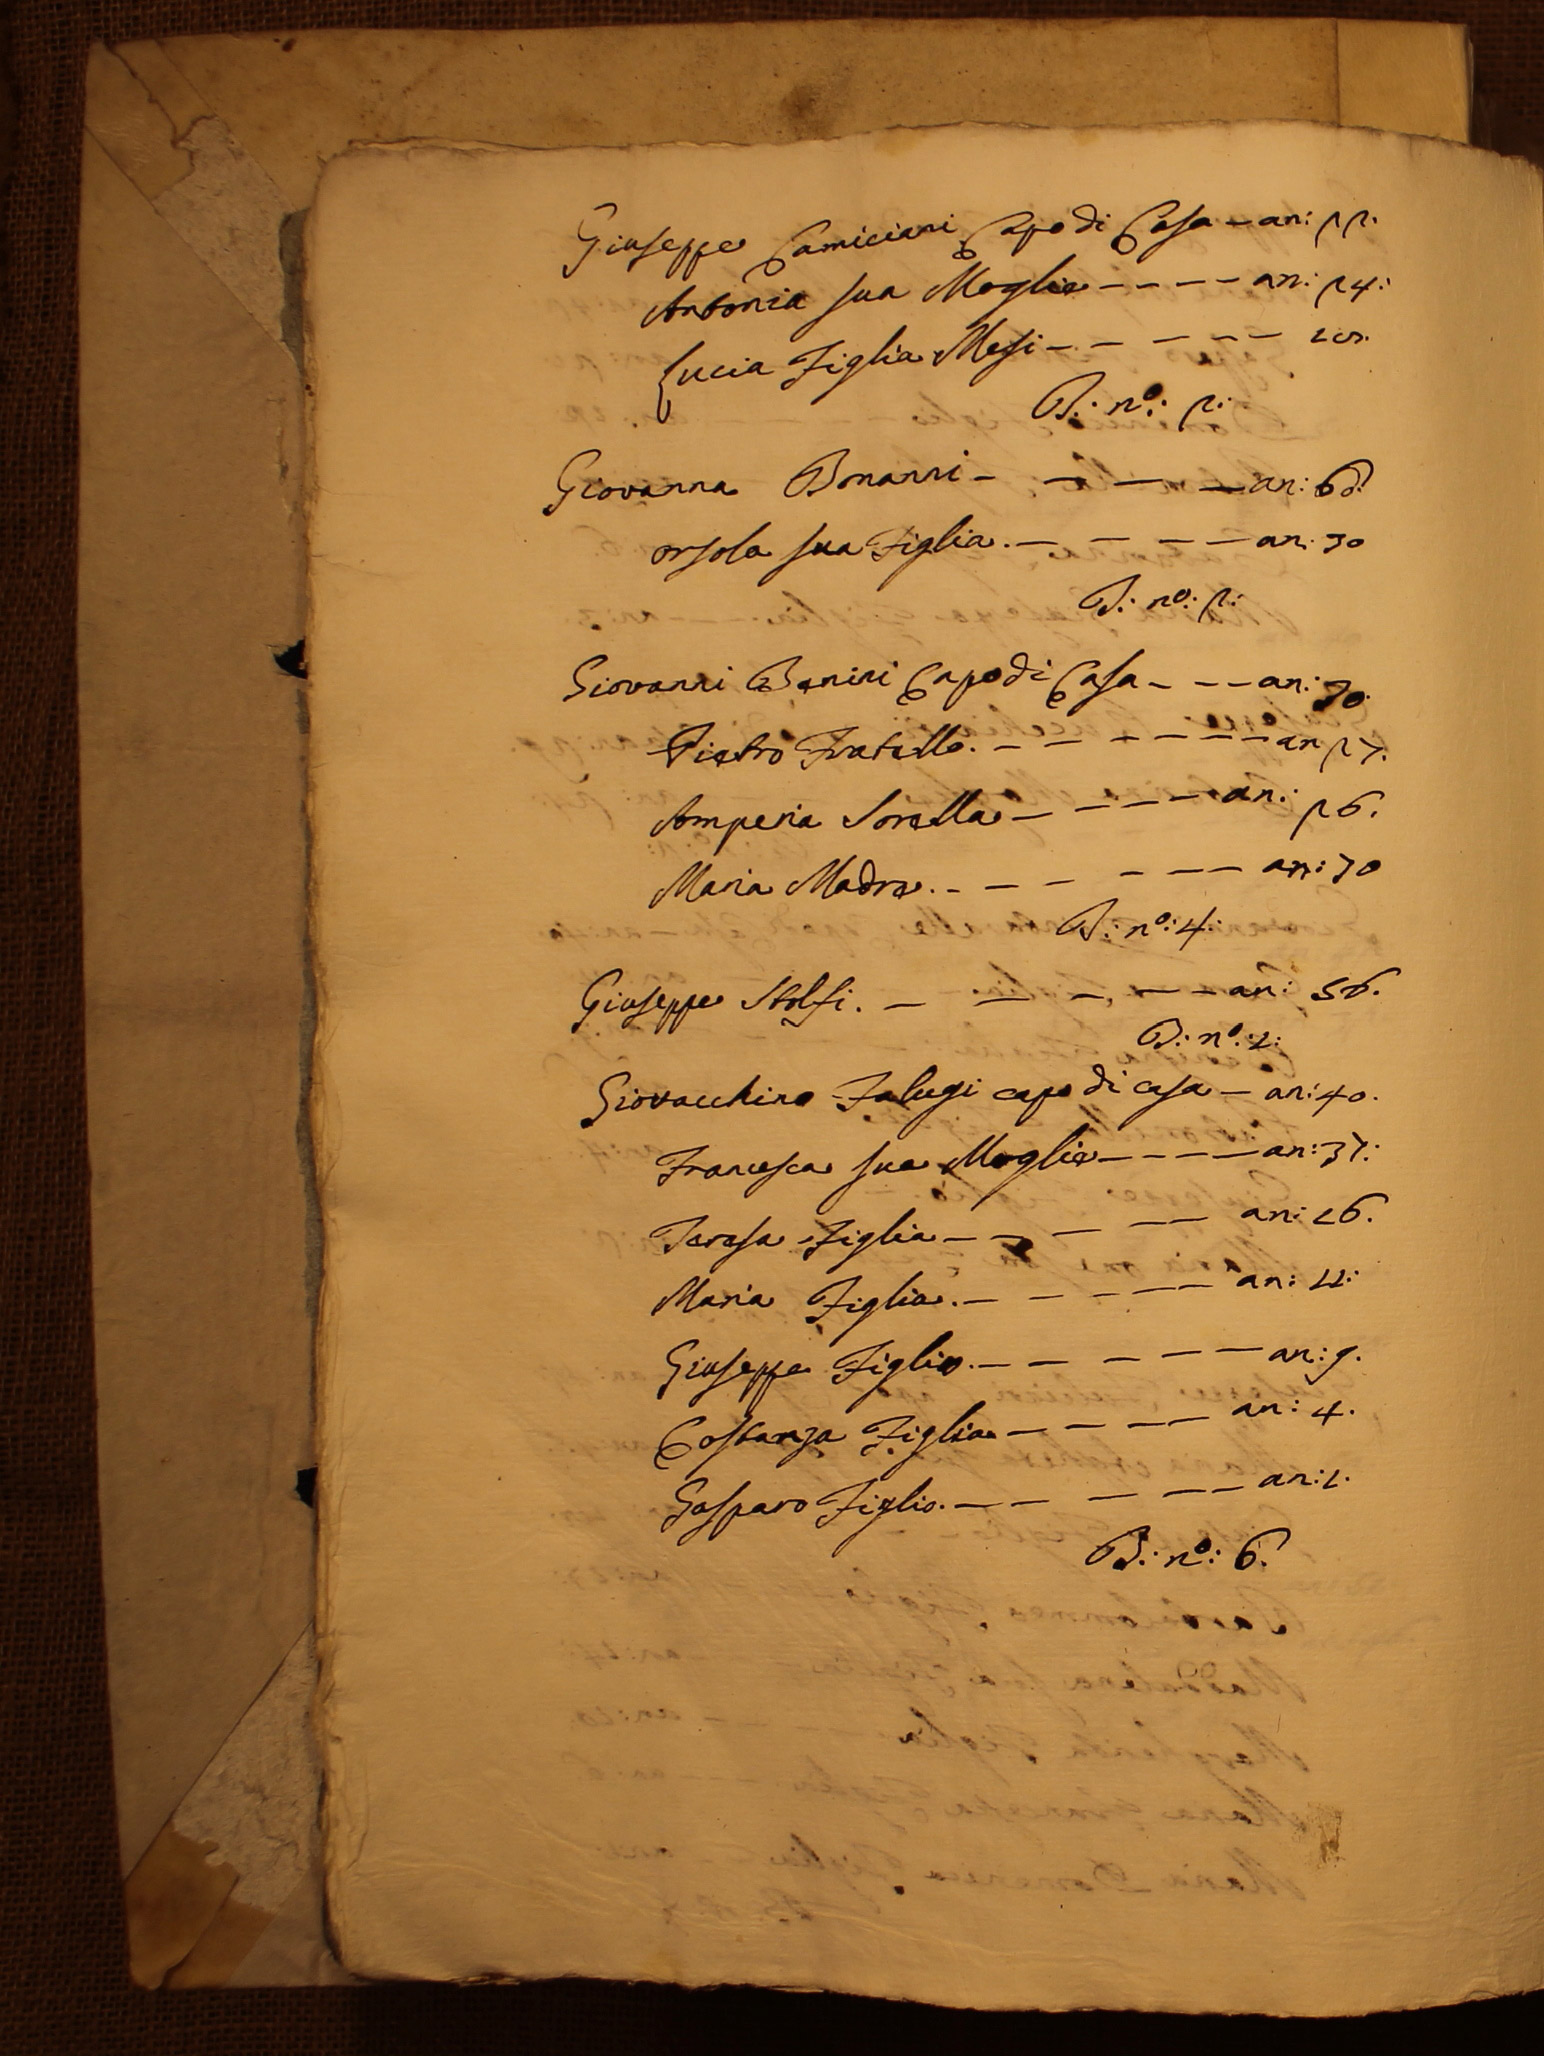 Giuseppe Camiciani Capo di Casa - an: 22.
Antonia sua Moglie - - - - an: 24:
Lucia Figlia Mesi - - - - - 10.
B: nº: 2:
Giovanna Bonanni - - - - an: 60.
Orsola sua Figlia. - - - - - an: 30
B: nº: 2:
Giovanni Benini Capo di Casa - - - an: 30.
Pietro Fratello. - - - - - - - an 27.
Amperia Sorella - - - - - an: 26.
Maria Madre. - - - - - - an: 70
B: nº: 4:
Giuseppe Stolfi. - - - - - an: 56.
B: nº: 1:
Giovacchino Falugi capo di casa - an: 40.
Francesca sua Moglie - - - - - an: 37:
Teresa Figlia - - - - - an: 16.
Maria Figlia. - - - - - an: 11:
Giuseppe Figlio. - - - - - - an: 9.
Costanza Figlia - - - - - an: 4.
Gasparo Figlio. - - - - - an: 1.
B: nº: 6.